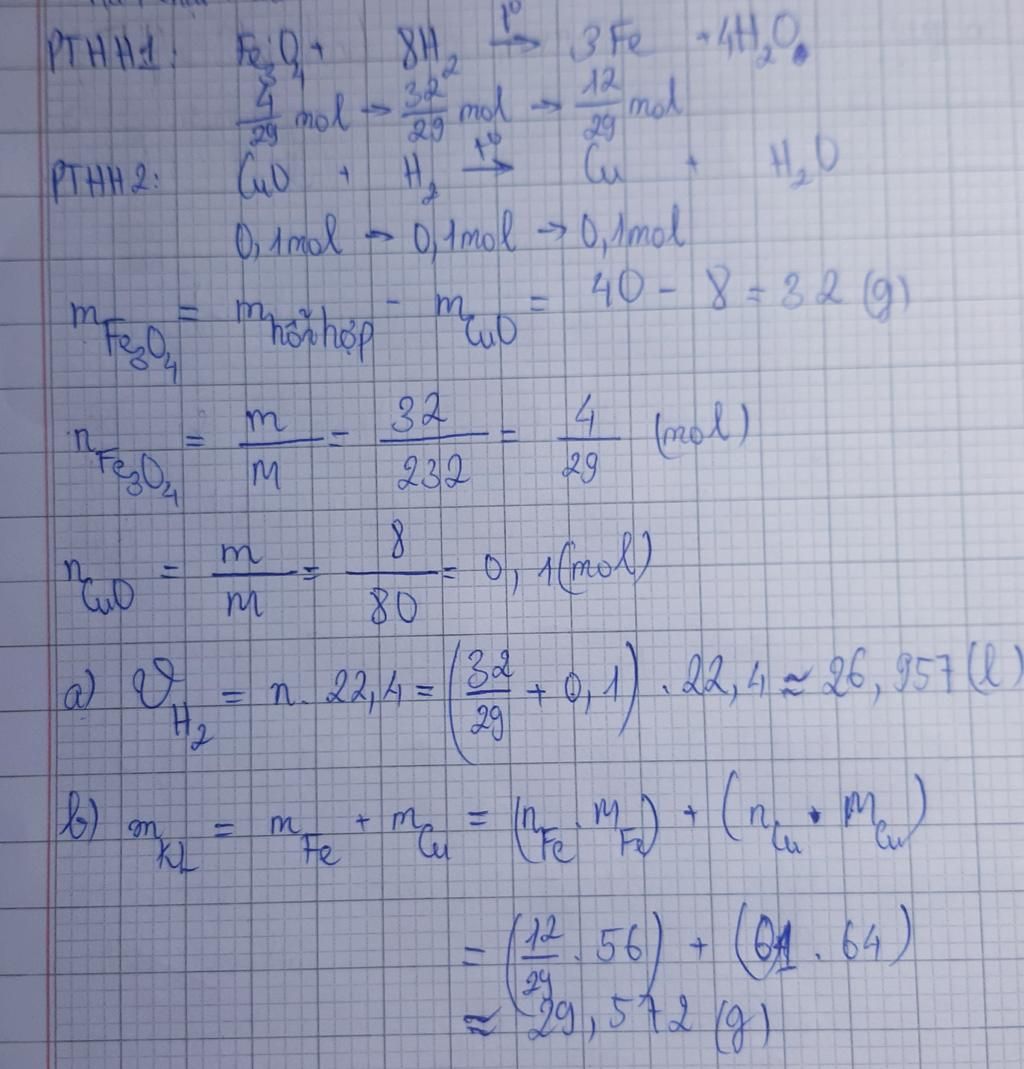 PTHH1: Fe₃O₄ + 8H₂ →(t⁰) 3Fe + 4H₂O
4/29 mol → 32/29 mol → 12/29 mol
PTHH2: CuO + H₂ →(t⁰) Cu + H₂O
0,1mol → 0,1mol → 0,1mol
m Fe₃O₄ = m hỗn hợp - m CuO = 40 - 8 = 32 (g)
n Fe₃O₄ = m/M = 32/232 = 4/29 (mol)
n CuO = m/M = 8/80 = 0,1(mol)
a) V H₂ = n . 22,4 = (32/29 + 0,1) . 22,4 ≈ 26,957 (l)
b) m KL = m Fe + m Cu = (n Fe . M Fe) + (n Cu . M Cu)
= (12/29 . 56) + (0,1 . 64)
≈ 29,572 (g)